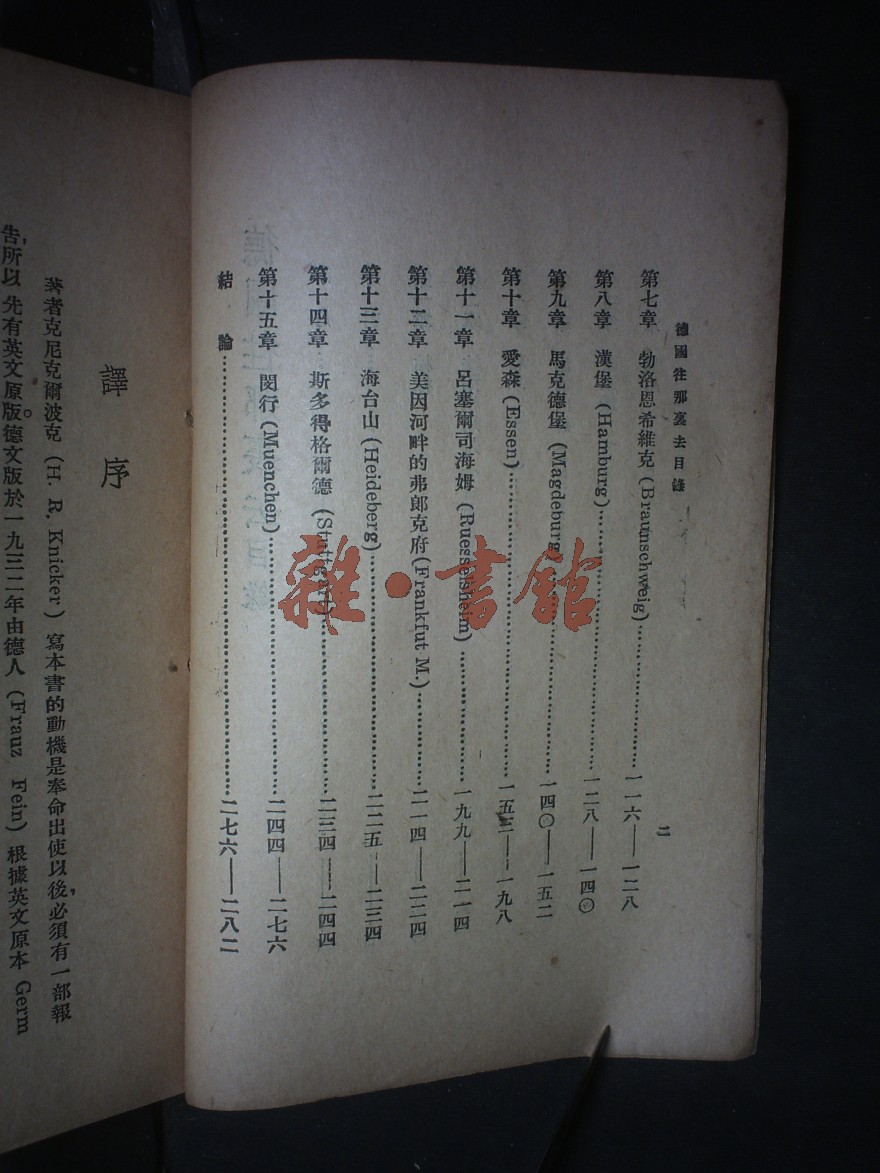 德國往那裏去目錄
二
第七章 勃洛恩希維克 (Braunschweig)………………一一六——一二八
第八章 漢堡 (Hamburg)………………一二八——一四〇
第九章 馬克德堡 (Magdeburg)………………一四〇——一五二
第十章 愛森 (Essen)………………一五二——一九八
第十一章 呂塞爾司海姆 (Ruesselsheim)………………一九九——二一四
第十二章 美因河畔的弗郎克府 (Frankfut M.)………………二一四——二二四
第十三章 海台山 (Heideberg)………………二二五——二三四
第十四章 斯多得格爾德 (Stuttgart)………………二三四——二四四
第十五章 閔行 (Muenchen)………………二四四——二七六
結 論………………二七六——二八二
譯 序
著者克尼克爾波克 (H. R. Knicker) 寫本書的動機是奉命出使以後,必須有一部報
告,所以先有英文原版。德文版於一九三二年由德人 (Frauz Fein) 根據英文原本 Germ
雜·書館